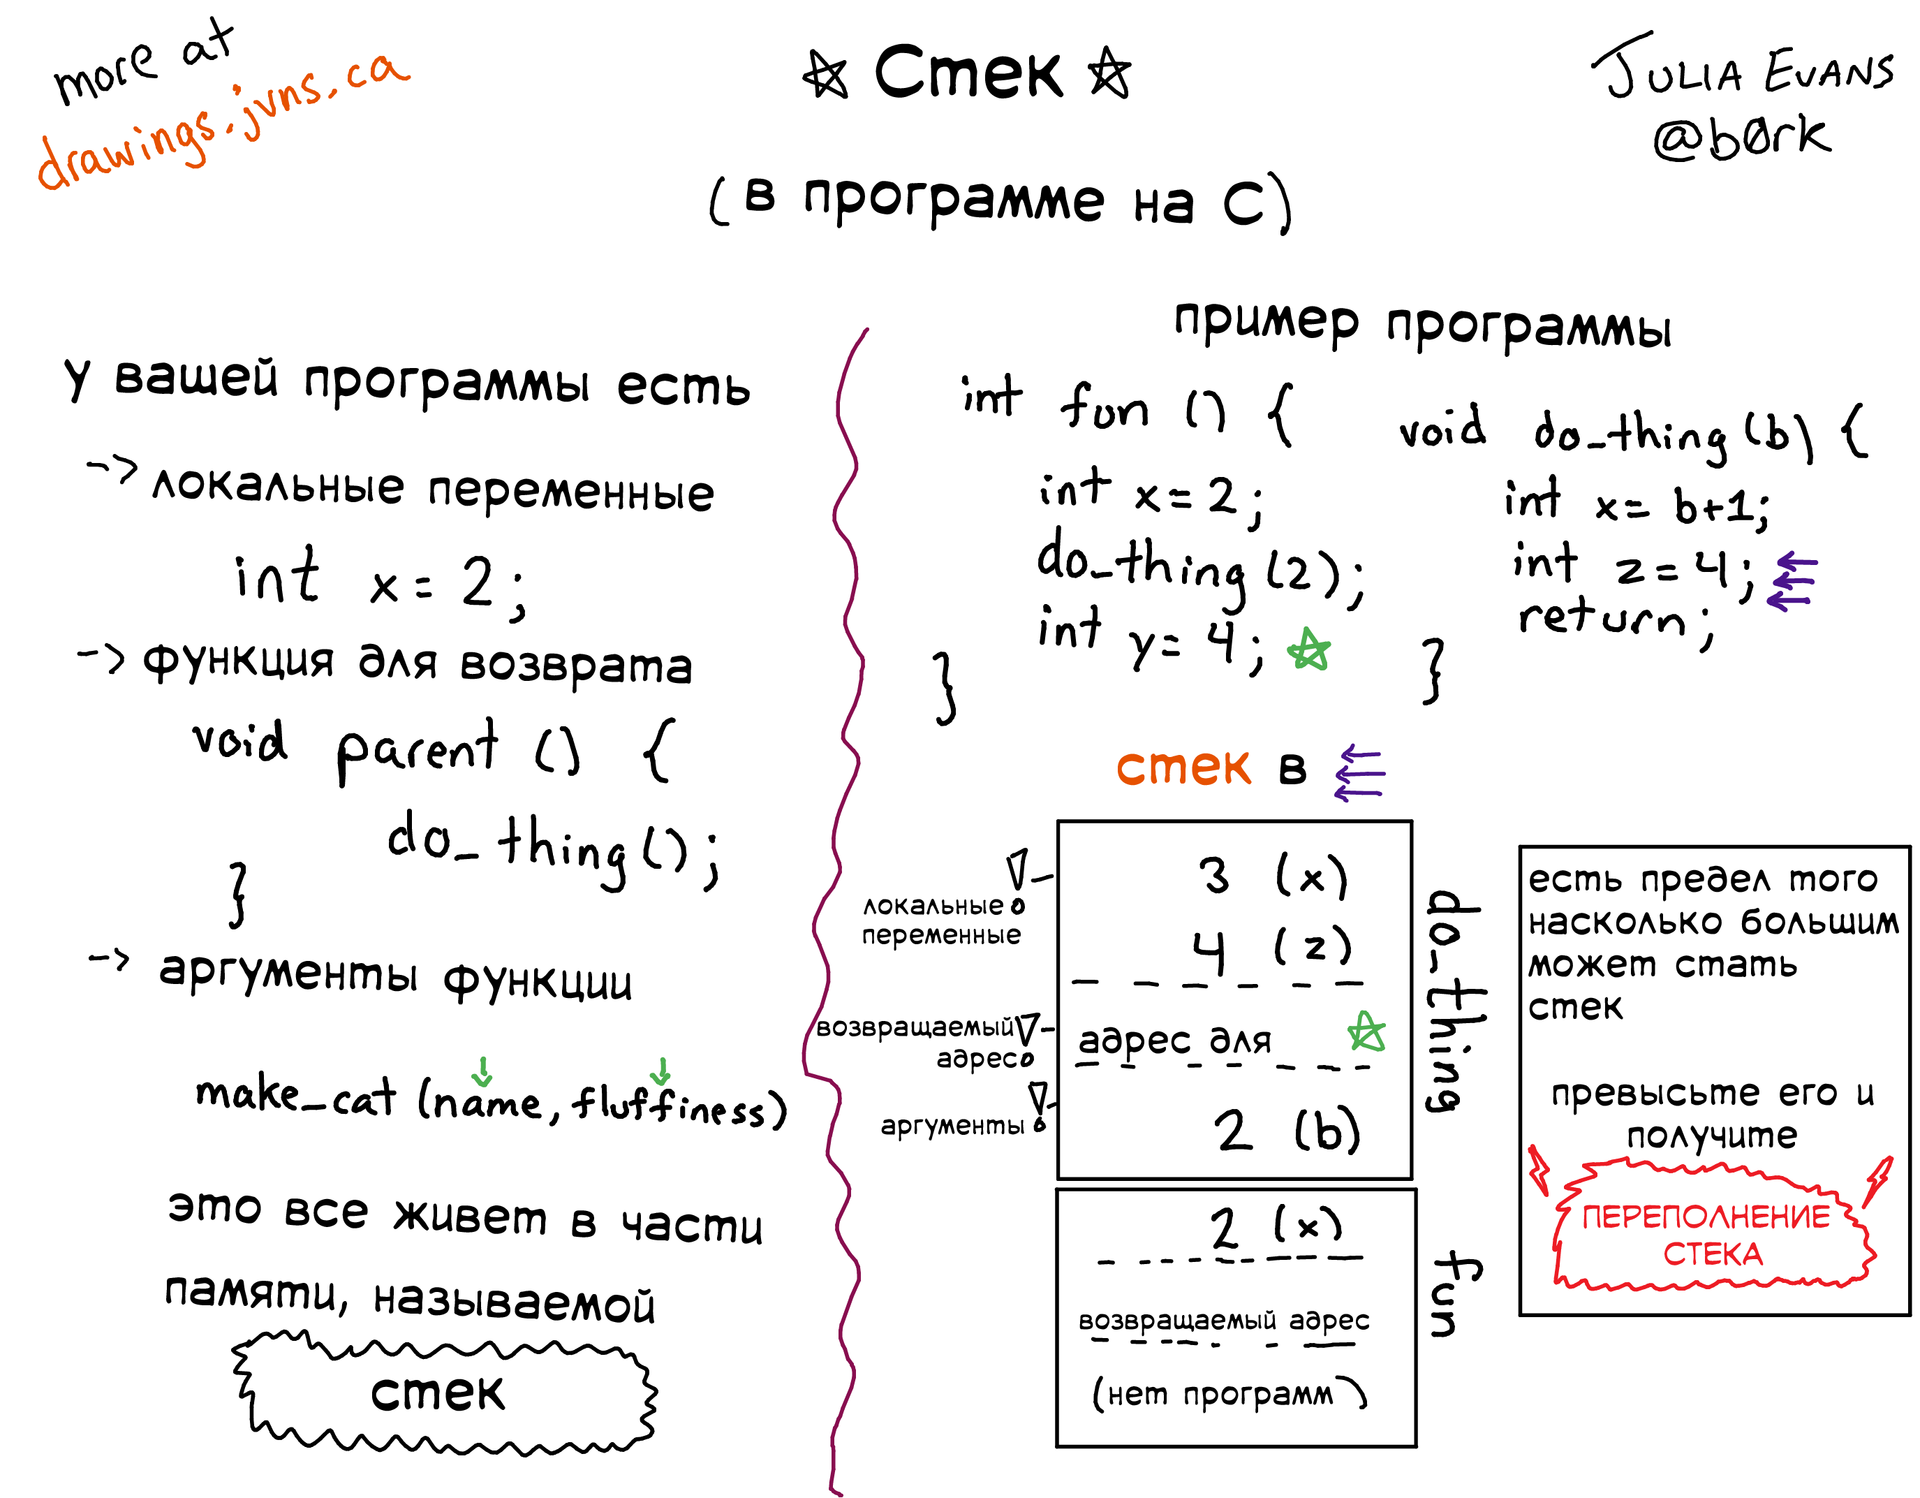 more at
drawings.jvns.ca
Стек
(в программе на С)
JULIA EVANS
@b0rk
у вашей программы есть
-> локальные переменные
int x = 2;
-> функция для возврата
void parent () {
do_thing();
}
-> аргументы функции
make_cat (name, fluffiness)
это все живет в части
памяти, называемой
стек
пример программы
int fun () {
int x = 2;
do_thing (2);
int y = 4;
}
void do_thing (b) {
int x = b+1;
int z = 4;
return;
}
стек в
локальные
переменные
3 (x)
4 (z)
возвращаемый
адрес
адрес для
аргументы
2 (b)
do_thing
2 (x)
возвращаемый адрес
(нет программ)
fun
есть предел того
насколько большим
может стать
стек
превысьте его и
получите
ПЕРЕПОЛНЕНИЕ
СТЕКА